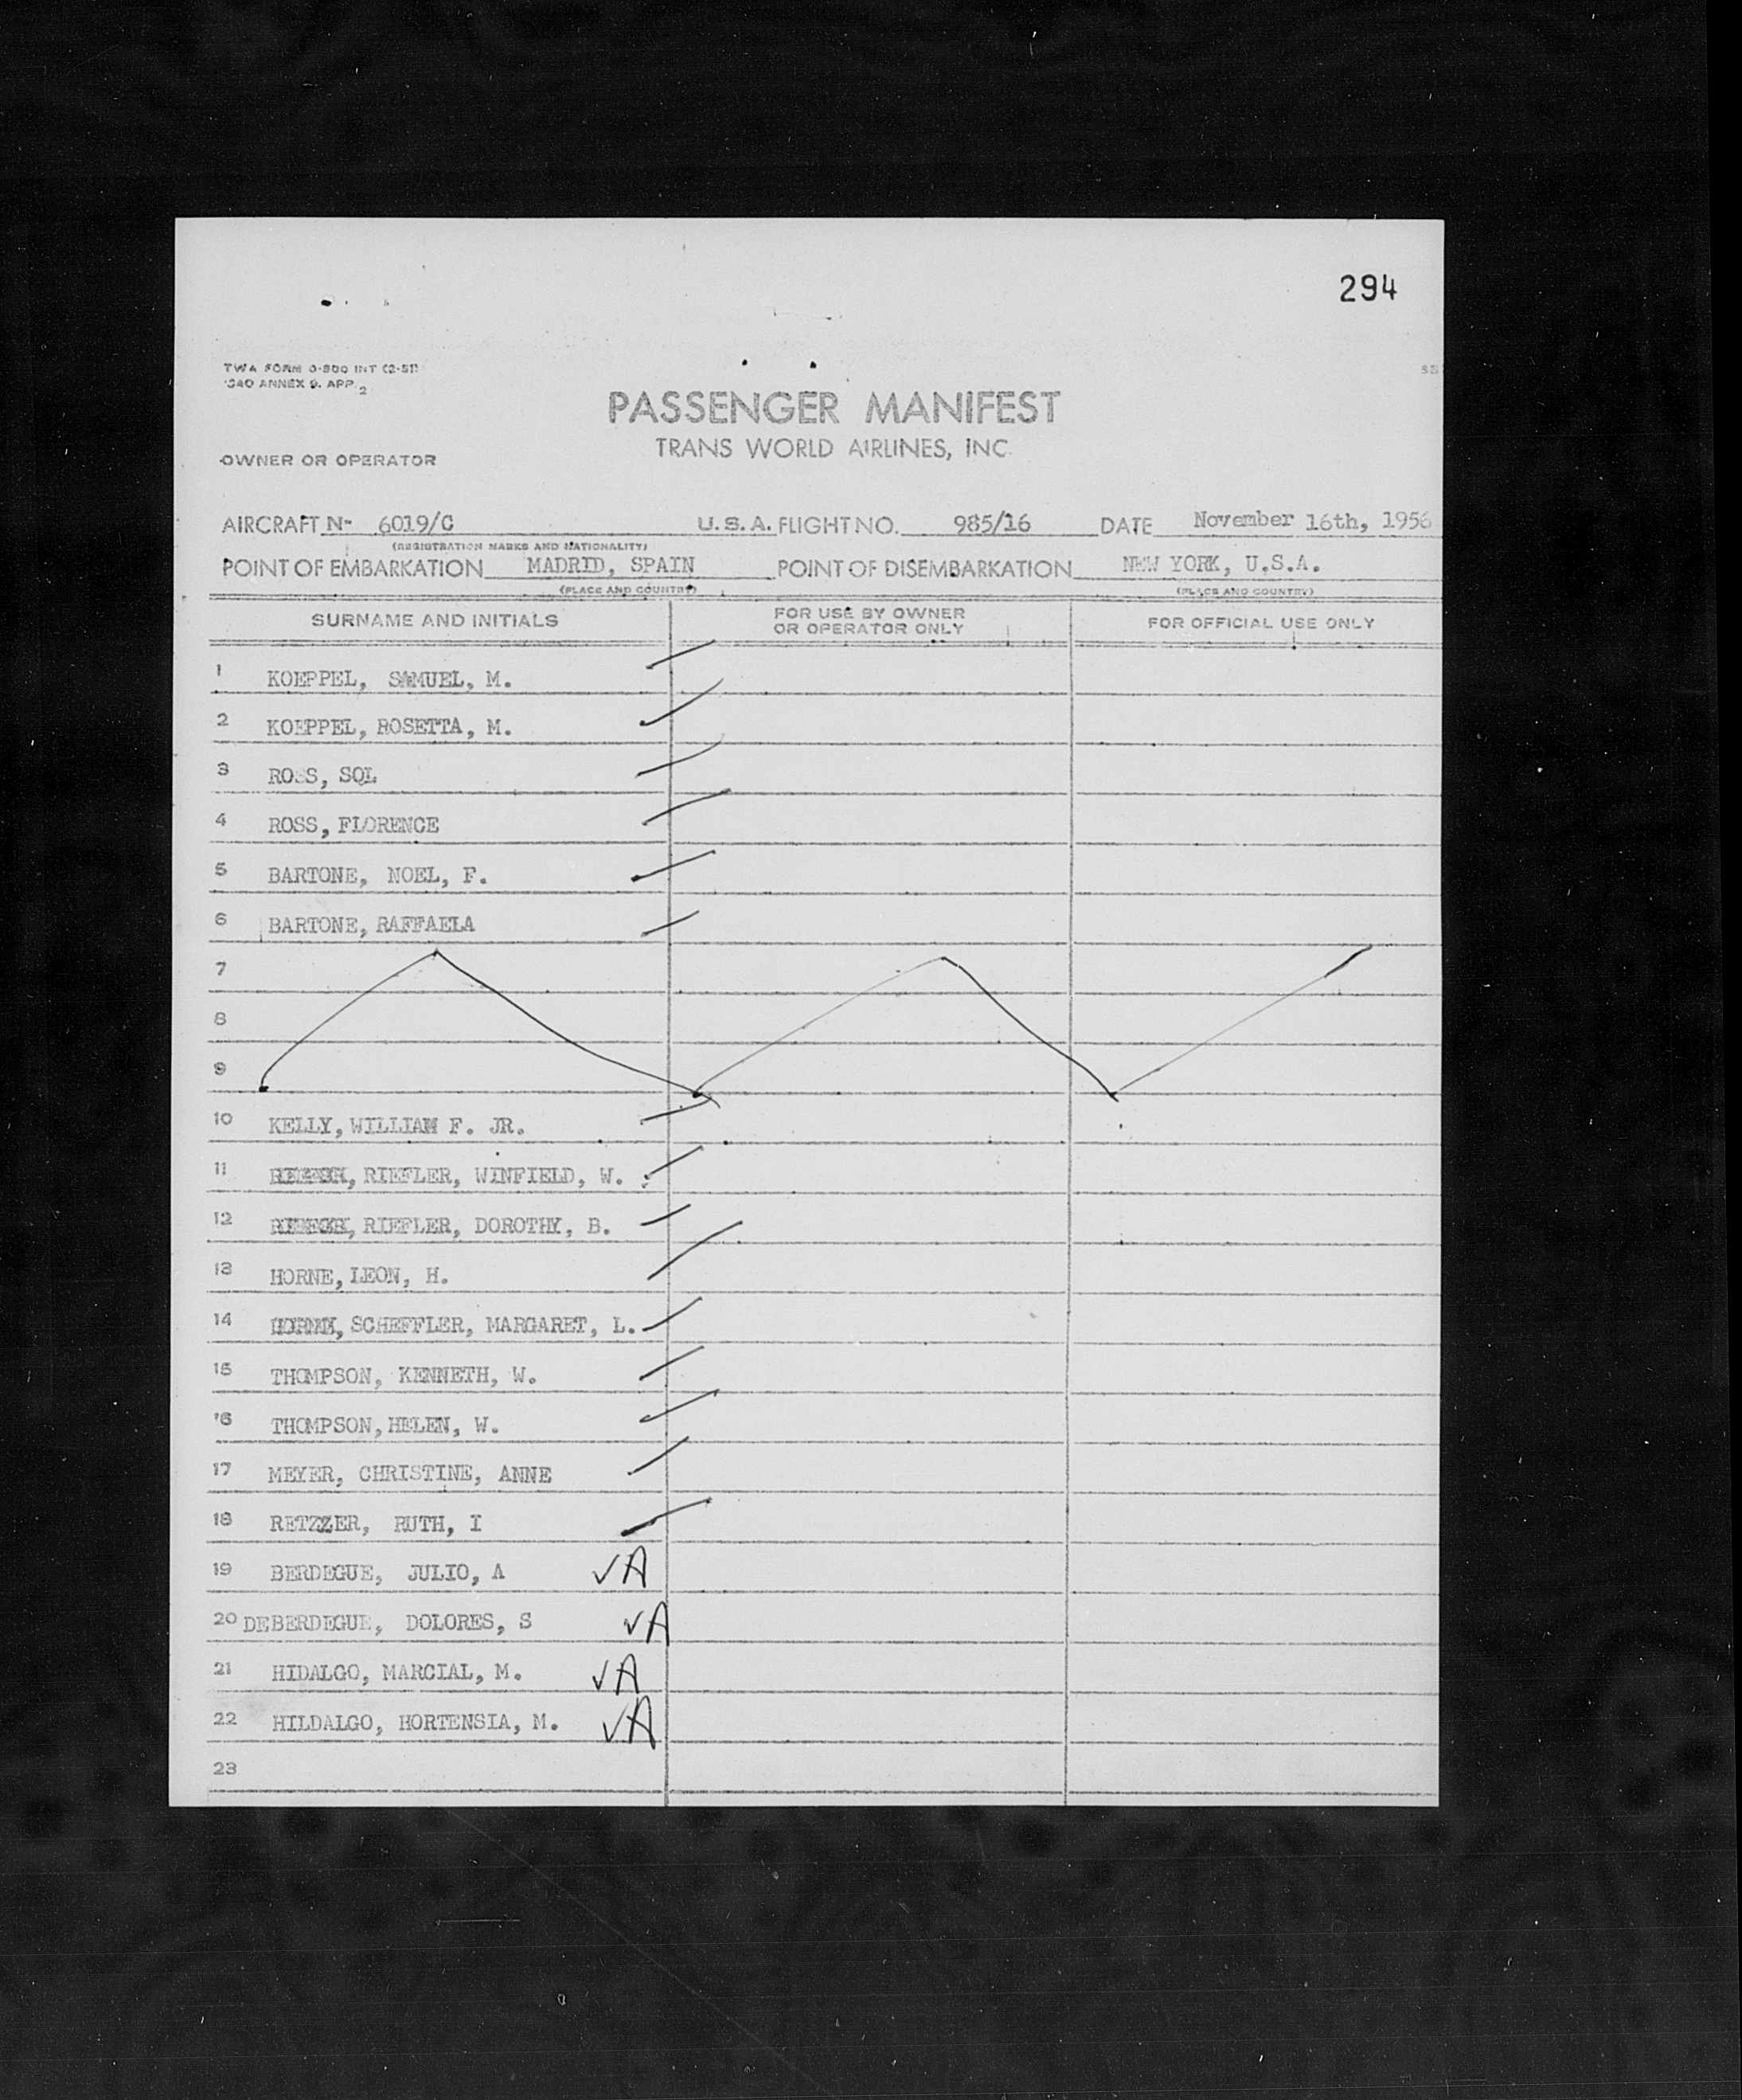 294
TWA FORM 0-800 INT (2-51)
ICAO ANNEX 9. APP. 2
PASSENGER MANIFEST
TRANS WORLD AIRLINES, INC.
OWNER OR OPERATOR
AIRCRAFT N- 6019/C U.S.A. FLIGHT NO. 985/16 DATE November 16th, 1956
(REGISTRATION MARKS AND NATIONALITY)
POINT OF EMBARKATION MADRID, SPAIN POINT OF DISEMBARKATION NEW YORK, U.S.A.
(PLACE AND COUNTRY) (PLACE AND COUNTRY)
SURNAME AND INITIALS FOR USE BY OWNER OR OPERATOR ONLY FOR OFFICIAL USE ONLY
1 KOEPPEL, SAMUEL, M.
2 KOEPPEL, ROSETTA, M.
3 ROSS, SOL
4 ROSS, FLORENCE
5 BARTONE, NOEL, F.
6 BARTONE, RAFFAELA
7
8
9
10 KELLY, WILLIAM F. JR.
11 RIEFLER, WINFIELD, W.
12 RIEFLER, DOROTHY, B.
13 HORNE, LEON, H.
14 SCHEFFLER, MARGARET, L.
15 THOMPSON, KENNETH, W.
16 THOMPSON, HELEN, W.
17 MEYER, CHRISTINE, ANNE
18 RETZZER, RUTH, I
19 BERDEGUE, JULIO, A √A
20 DEBERDEGUE, DOLORES, S √A
21 HIDALGO, MARCIAL, M. √A
22 HILDALGO, HORTENSIA, M. √A
23